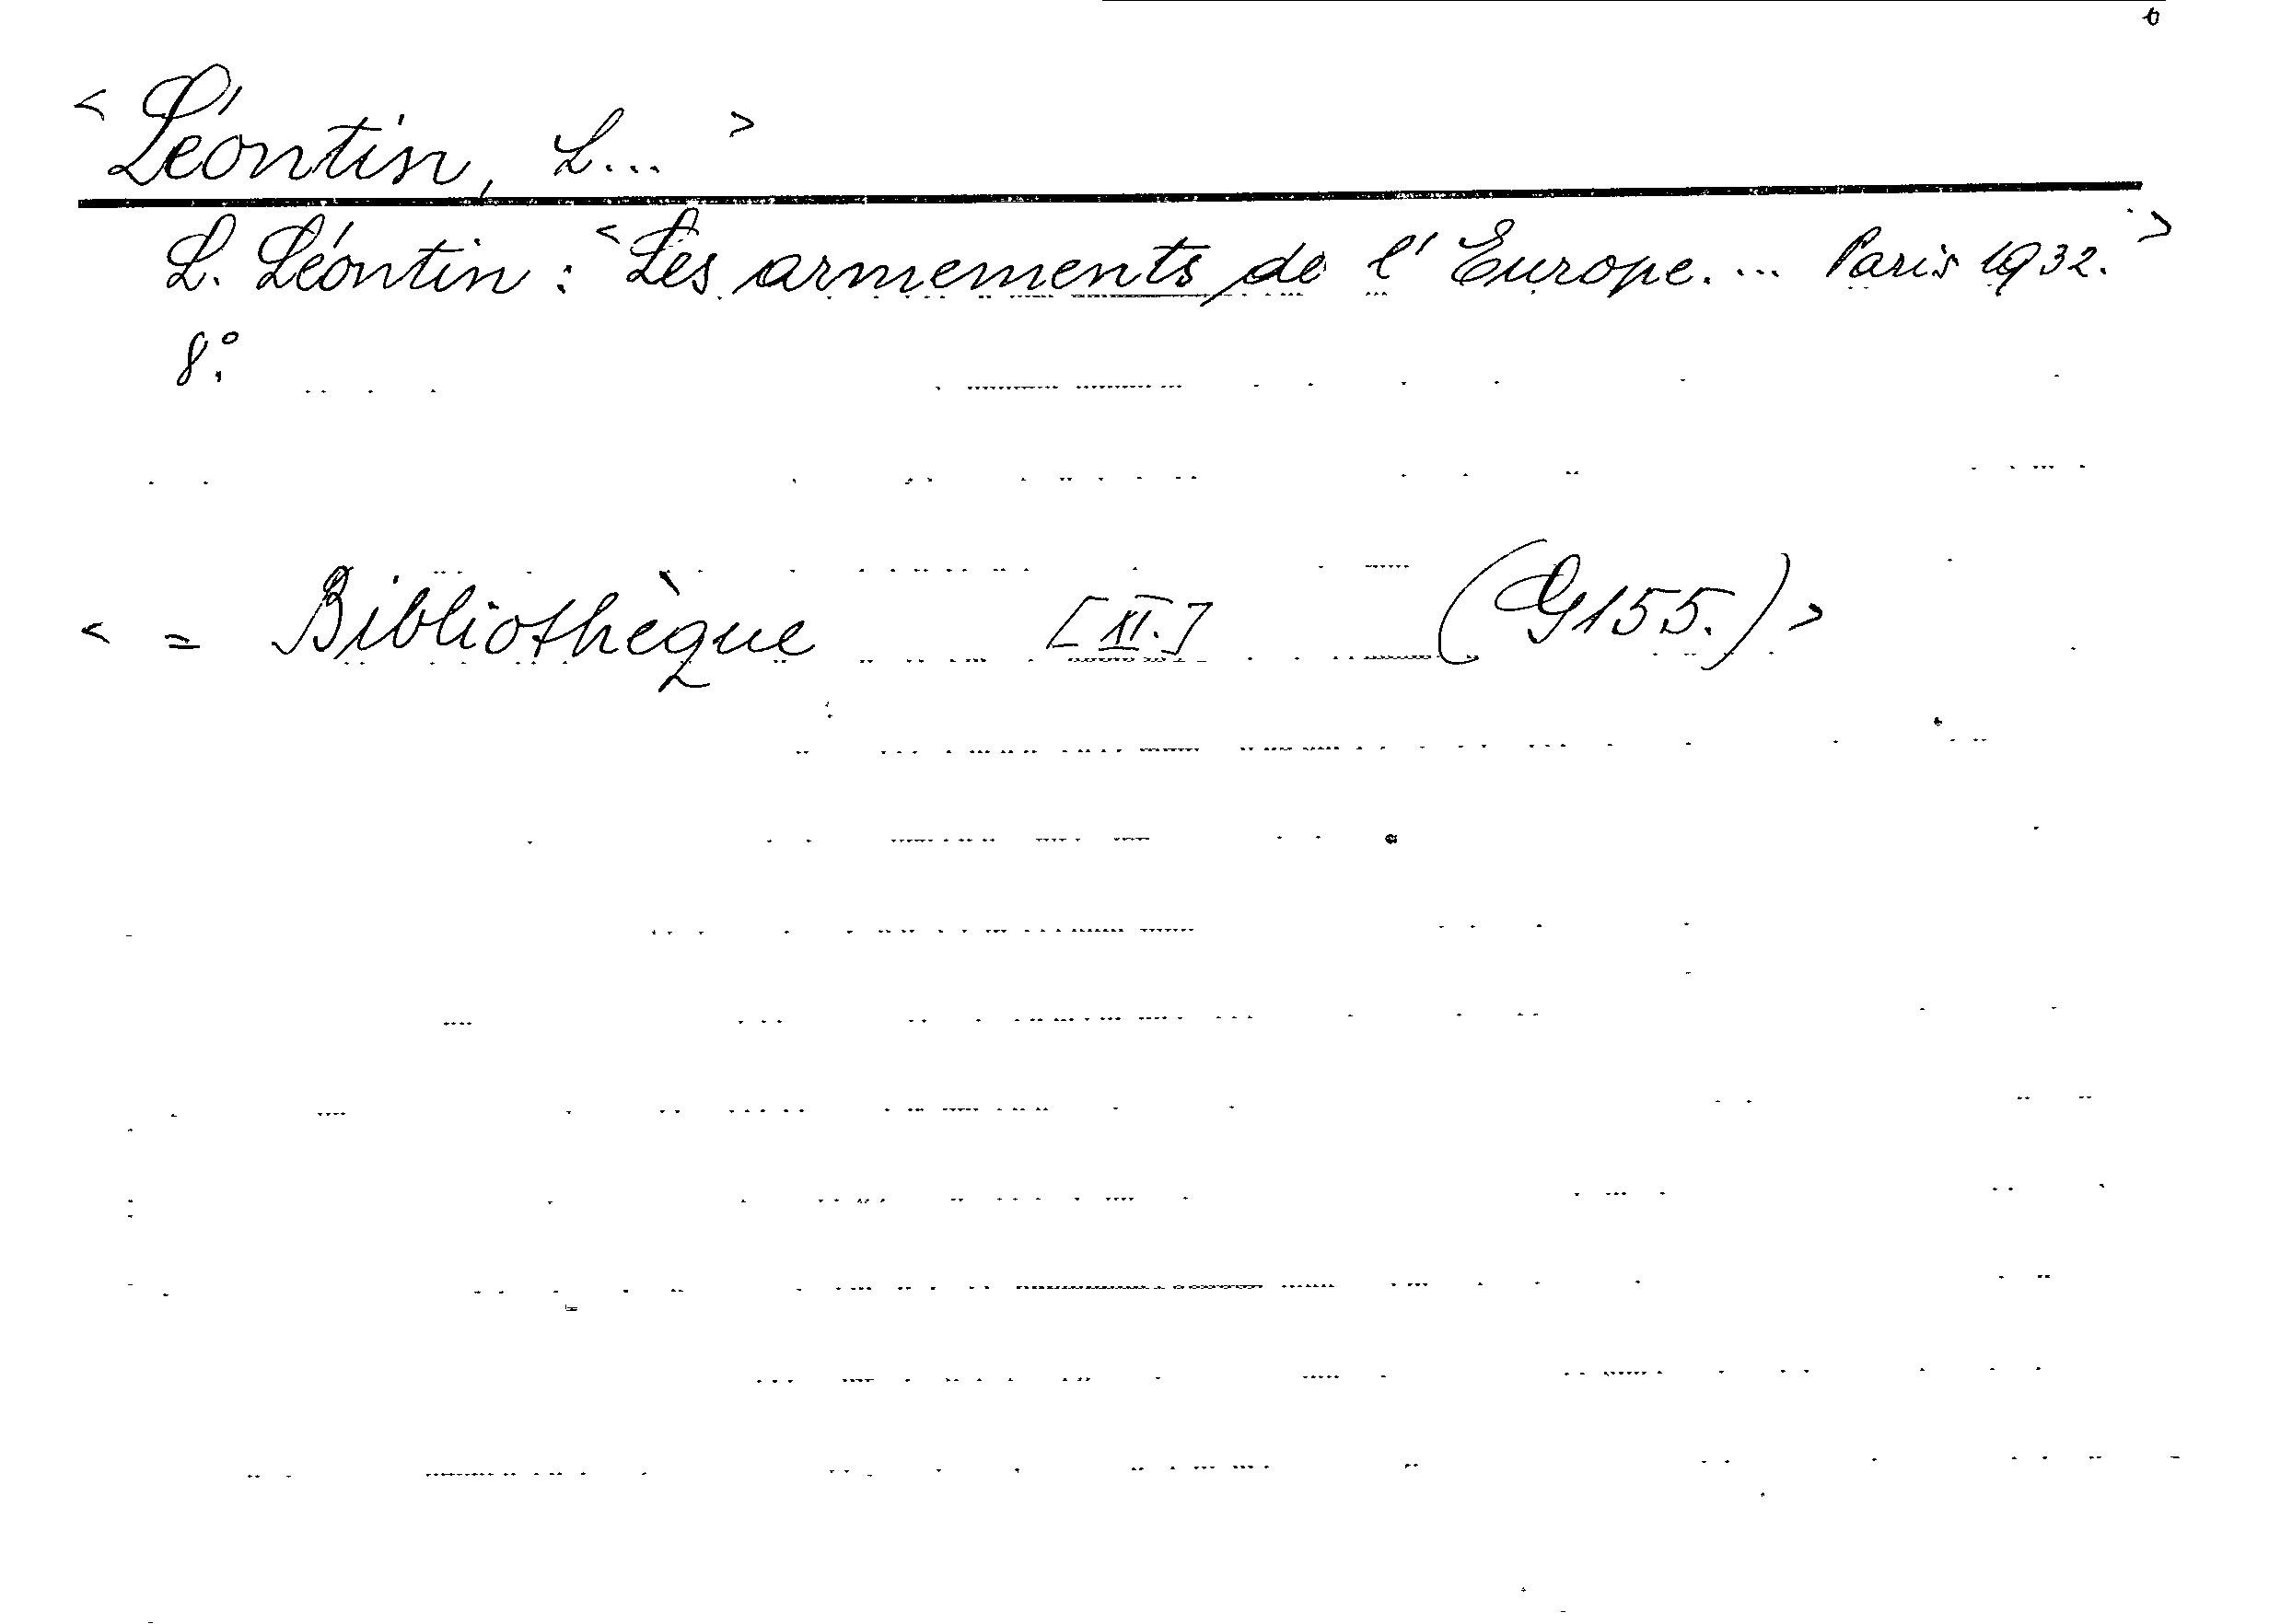 < Léontin, L... >
L. Léontin: < Les armements de l'Europe. ... Paris 1932. >
8°.
< = Bibliothèque [II.] (G155.) >